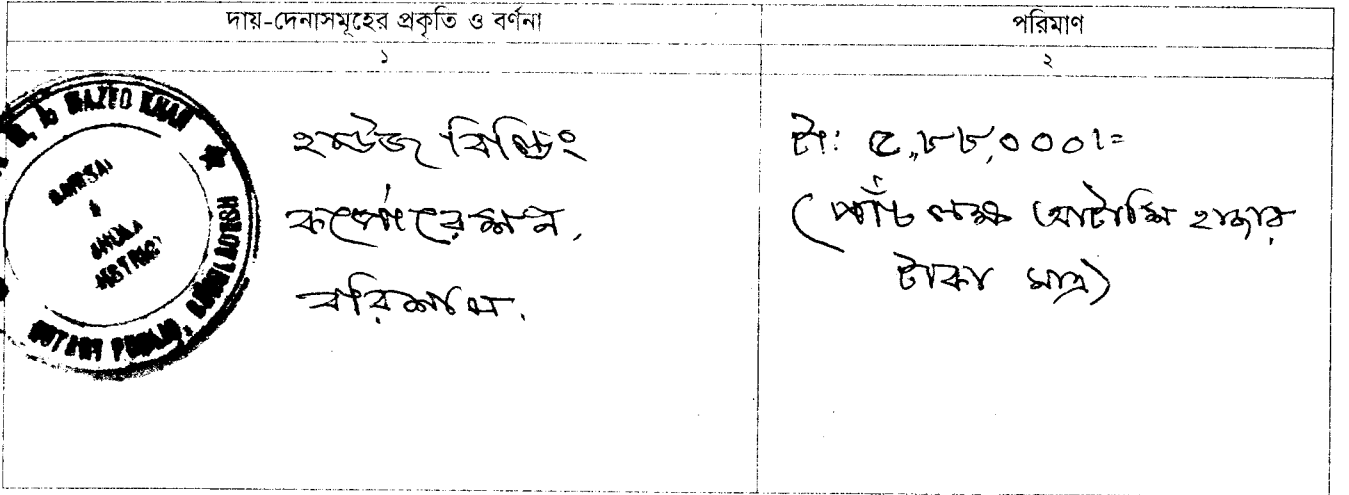 দায়-দেনাসমূহের প্রকৃতি ও বর্ণনা
পরিমাণ
১
২
হাউজ বিল্ডিং
কর্পোরেশন,
বরিশাল.
টা: ৫,৮৮,০০০/=
(পাঁচ লক্ষ আটাশি হাজার
টাকা মাত্র)
WAZED KHAN
BARISAL
&
DISTRICT
NOTARY PUBLIC, BANGLADESH